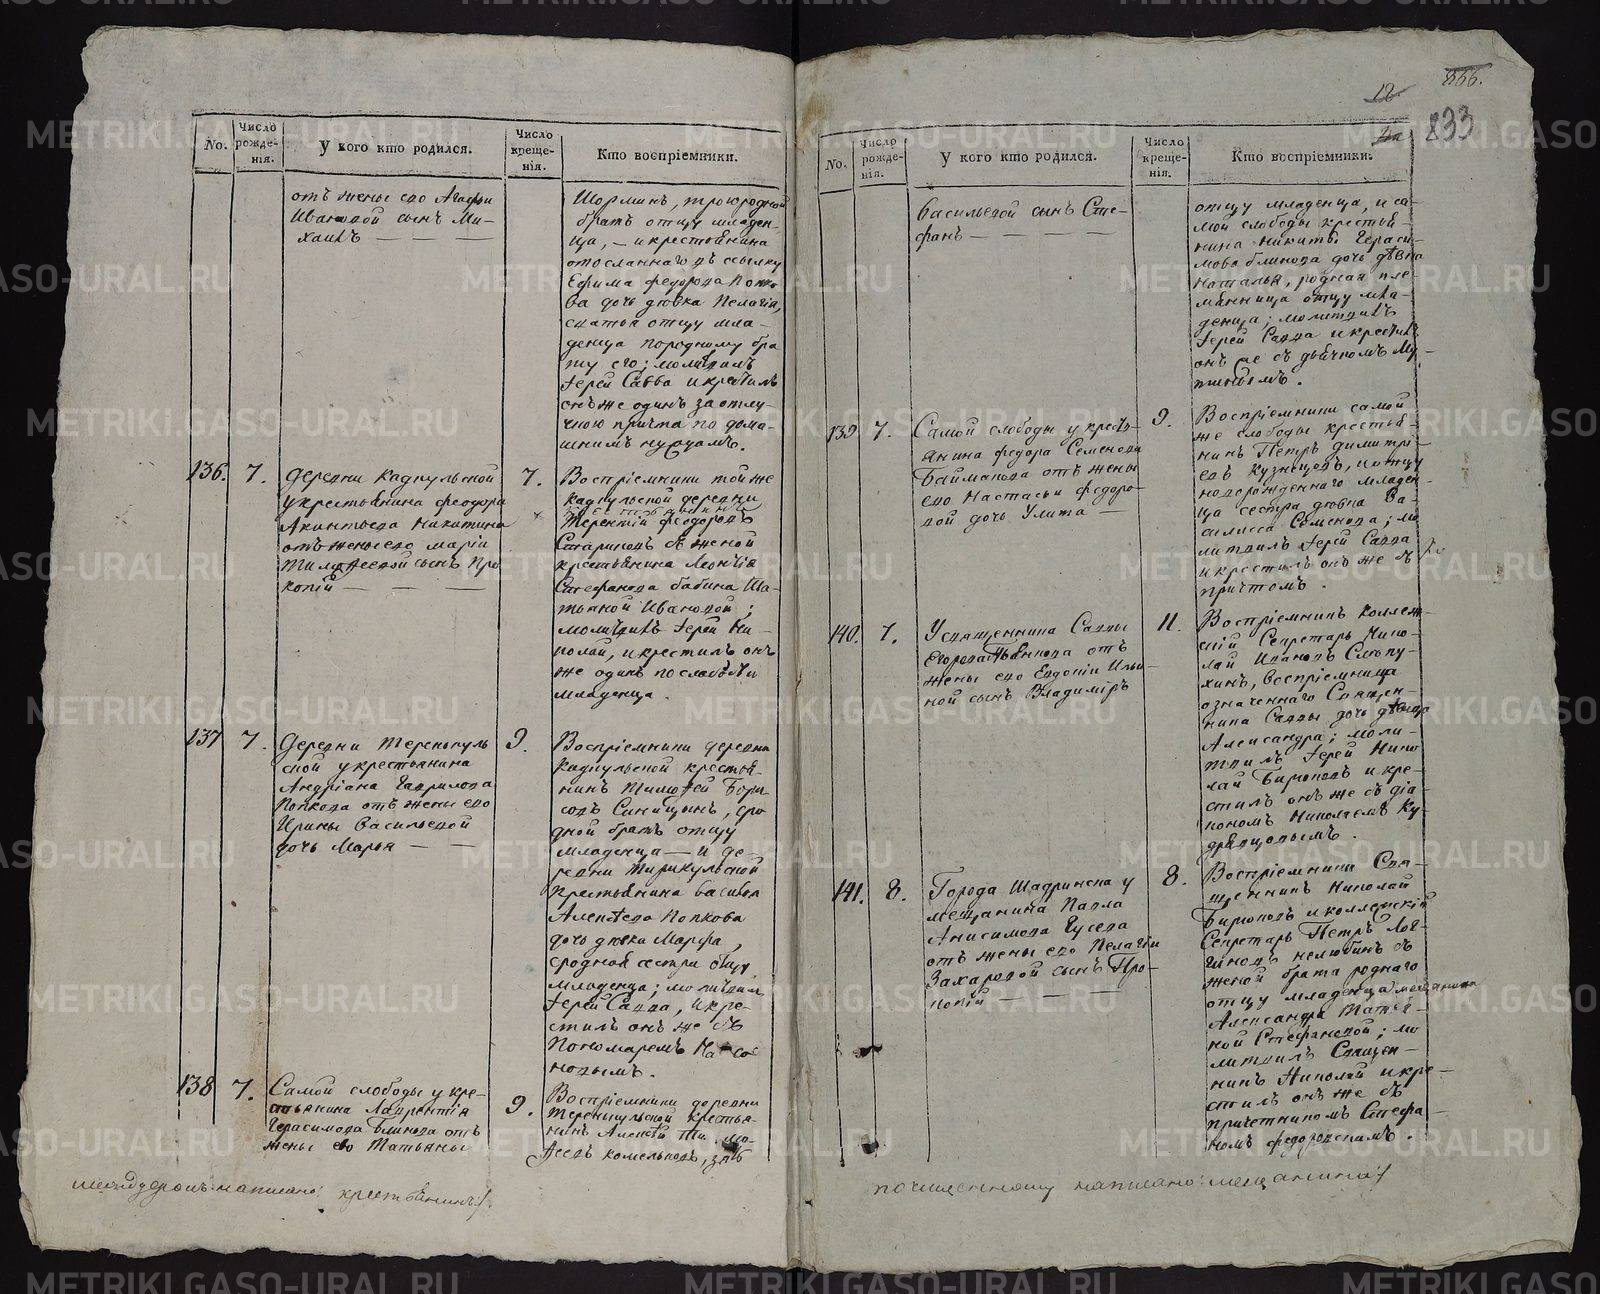 12.
866.
833
No.
Число рожде-нія.
У кого кто родился.
Число креще-нія.
Кто воспріемники.
отъ жены его Агафьи
Ивановой сынъ Ми-
хаилъ — — —
Шорминъ, троюродной
братъ отцу младен-
ца, — и крестьянина
отосланнаго въ ссылку
Ефима Федорова Попко-
ва дочь девка Пелагія,
сватья отцу мла-
денца породному бра
ту его; молитвилъ
Іерей Савва и крестилъ
онъ же одинъ за отлу-
чкою причта по дома-
шнимъ нуждамъ.
136. 7. Деревни Кадкульской
у крестьянина Феодора
Акинтьева Никитина
отъ жены его Маріи
Тимофеевой сынъ Про
копій — — —
7. Воспріемники той же
Кадкульской деревни
крестьянинъ
Терентій Феодоровъ
Сатариновъ съ женой
крестьянина Леонтія
Стефанова Бабина Та-
тьяной Ивановой;
молитвилъ Іерей Ни-
колай, и крестилъ онъ
же одинъ по слабости
младенца.
137 7. Деревни Теренкуль
ской у крестьянина
Андріана Гаврилова
Попкова отъ жены его
Ирины Васильевой
дочь Марья — —
9. Воспріемники деревни
Кадкульской крестья-
нинъ Тимофей Бори-
совъ Синицынъ, сро
дной братъ отцу
младенца — и де-
ревни Тирикульской
крестьянина Василья
Алексеева Попкова
дочь девка Марфа,
сродная сестра отцу
младенца; молитвилъ
Іерей Савва, и кре-
стилъ онъ же съ
Пономаремъ
138 7. Самой слободы у кре-
стьянина Лаврентія
Герасимова Блинова отъ
жены его Татьяны
9. Воспріемники деревни
Теренкульской крестья-
нинъ Алексей Тимо-
феевъ Комельковъ, зять
между строкъ написано: крестьянинъ/
No.
Число рожде-нія.
У кого кто родился.
Число креще-нія.
Кто воспріемники.
Васильевой сынъ Сте-
фанъ — — —
отцу младенца, и са-
мой слободы крестья-
нина Никиты Гераси-
мова Блинова дочь девка
Наталья, родная пле-
мянница отцу мла-
денца; молитвилъ
Іерей Савва и крестилъ
онъ же съ дьячкомъ
139 7. Самой слободы у кресть-
янина Федора Семенова
Байманова отъ жены
его Настасьи Федоро-
вой дочь Улита —
9. Воспріемники самой
же слободы крестья-
нинъ Петръ Димитрі-
евъ Кузнецовъ, и отцу
новорожденнаго младен-
ца сестра девка Ва-
силиса Семенова; мо
литвилъ Іерей Савва
и крестилъ онъ же съ
причтомъ.
140. 7. У священника Саввы
Егорова отъ
жены его Евдокіи Ильи-
ной сынъ Владиміръ
11. Воспріемникъ Коллеж-
скій Секретарь Нико-
лай Ивановъ
воспріемница
означеннаго Священ-
ника Саввы дочь девица
Александра; моли-
твилъ Іерей Нико
лай Бирюковъ и кре-
стилъ онъ же съ діа-
кономъ Николаемъ Ку-
дрявцовымъ.
141. 8. Города Шадринска у
мещанина Павла
Анисимова Гусева
отъ жены его Пелагіи
Захаровой сынъ Про-
копій — — —
8. Воспріемники Свя-
щенникъ Николай
Бирюковъ и Коллежскій
Секретарь Петръ Лог-
гиновъ Нелюбинъ съ
женой брата роднаго
отцу младенца мещанина
Александра Татья-
ной Стефановой; мо
литвилъ Священ-
никъ Николай и кре-
стилъ онъ же съ
причетникомъ Стефа-
номъ Федоровскимъ.
по чищенному написано: мещанина/
METRIKI.GASO-URAL.RU